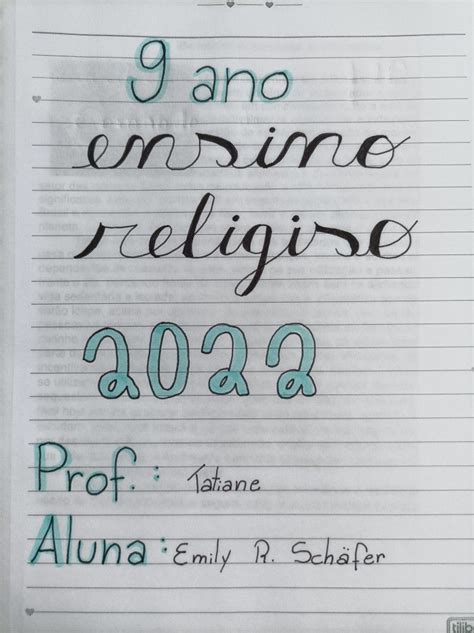 9 ano
ensino
religiso
2022
Prof.: Tatiane
Aluna: Emily R. Schäfer
tilib